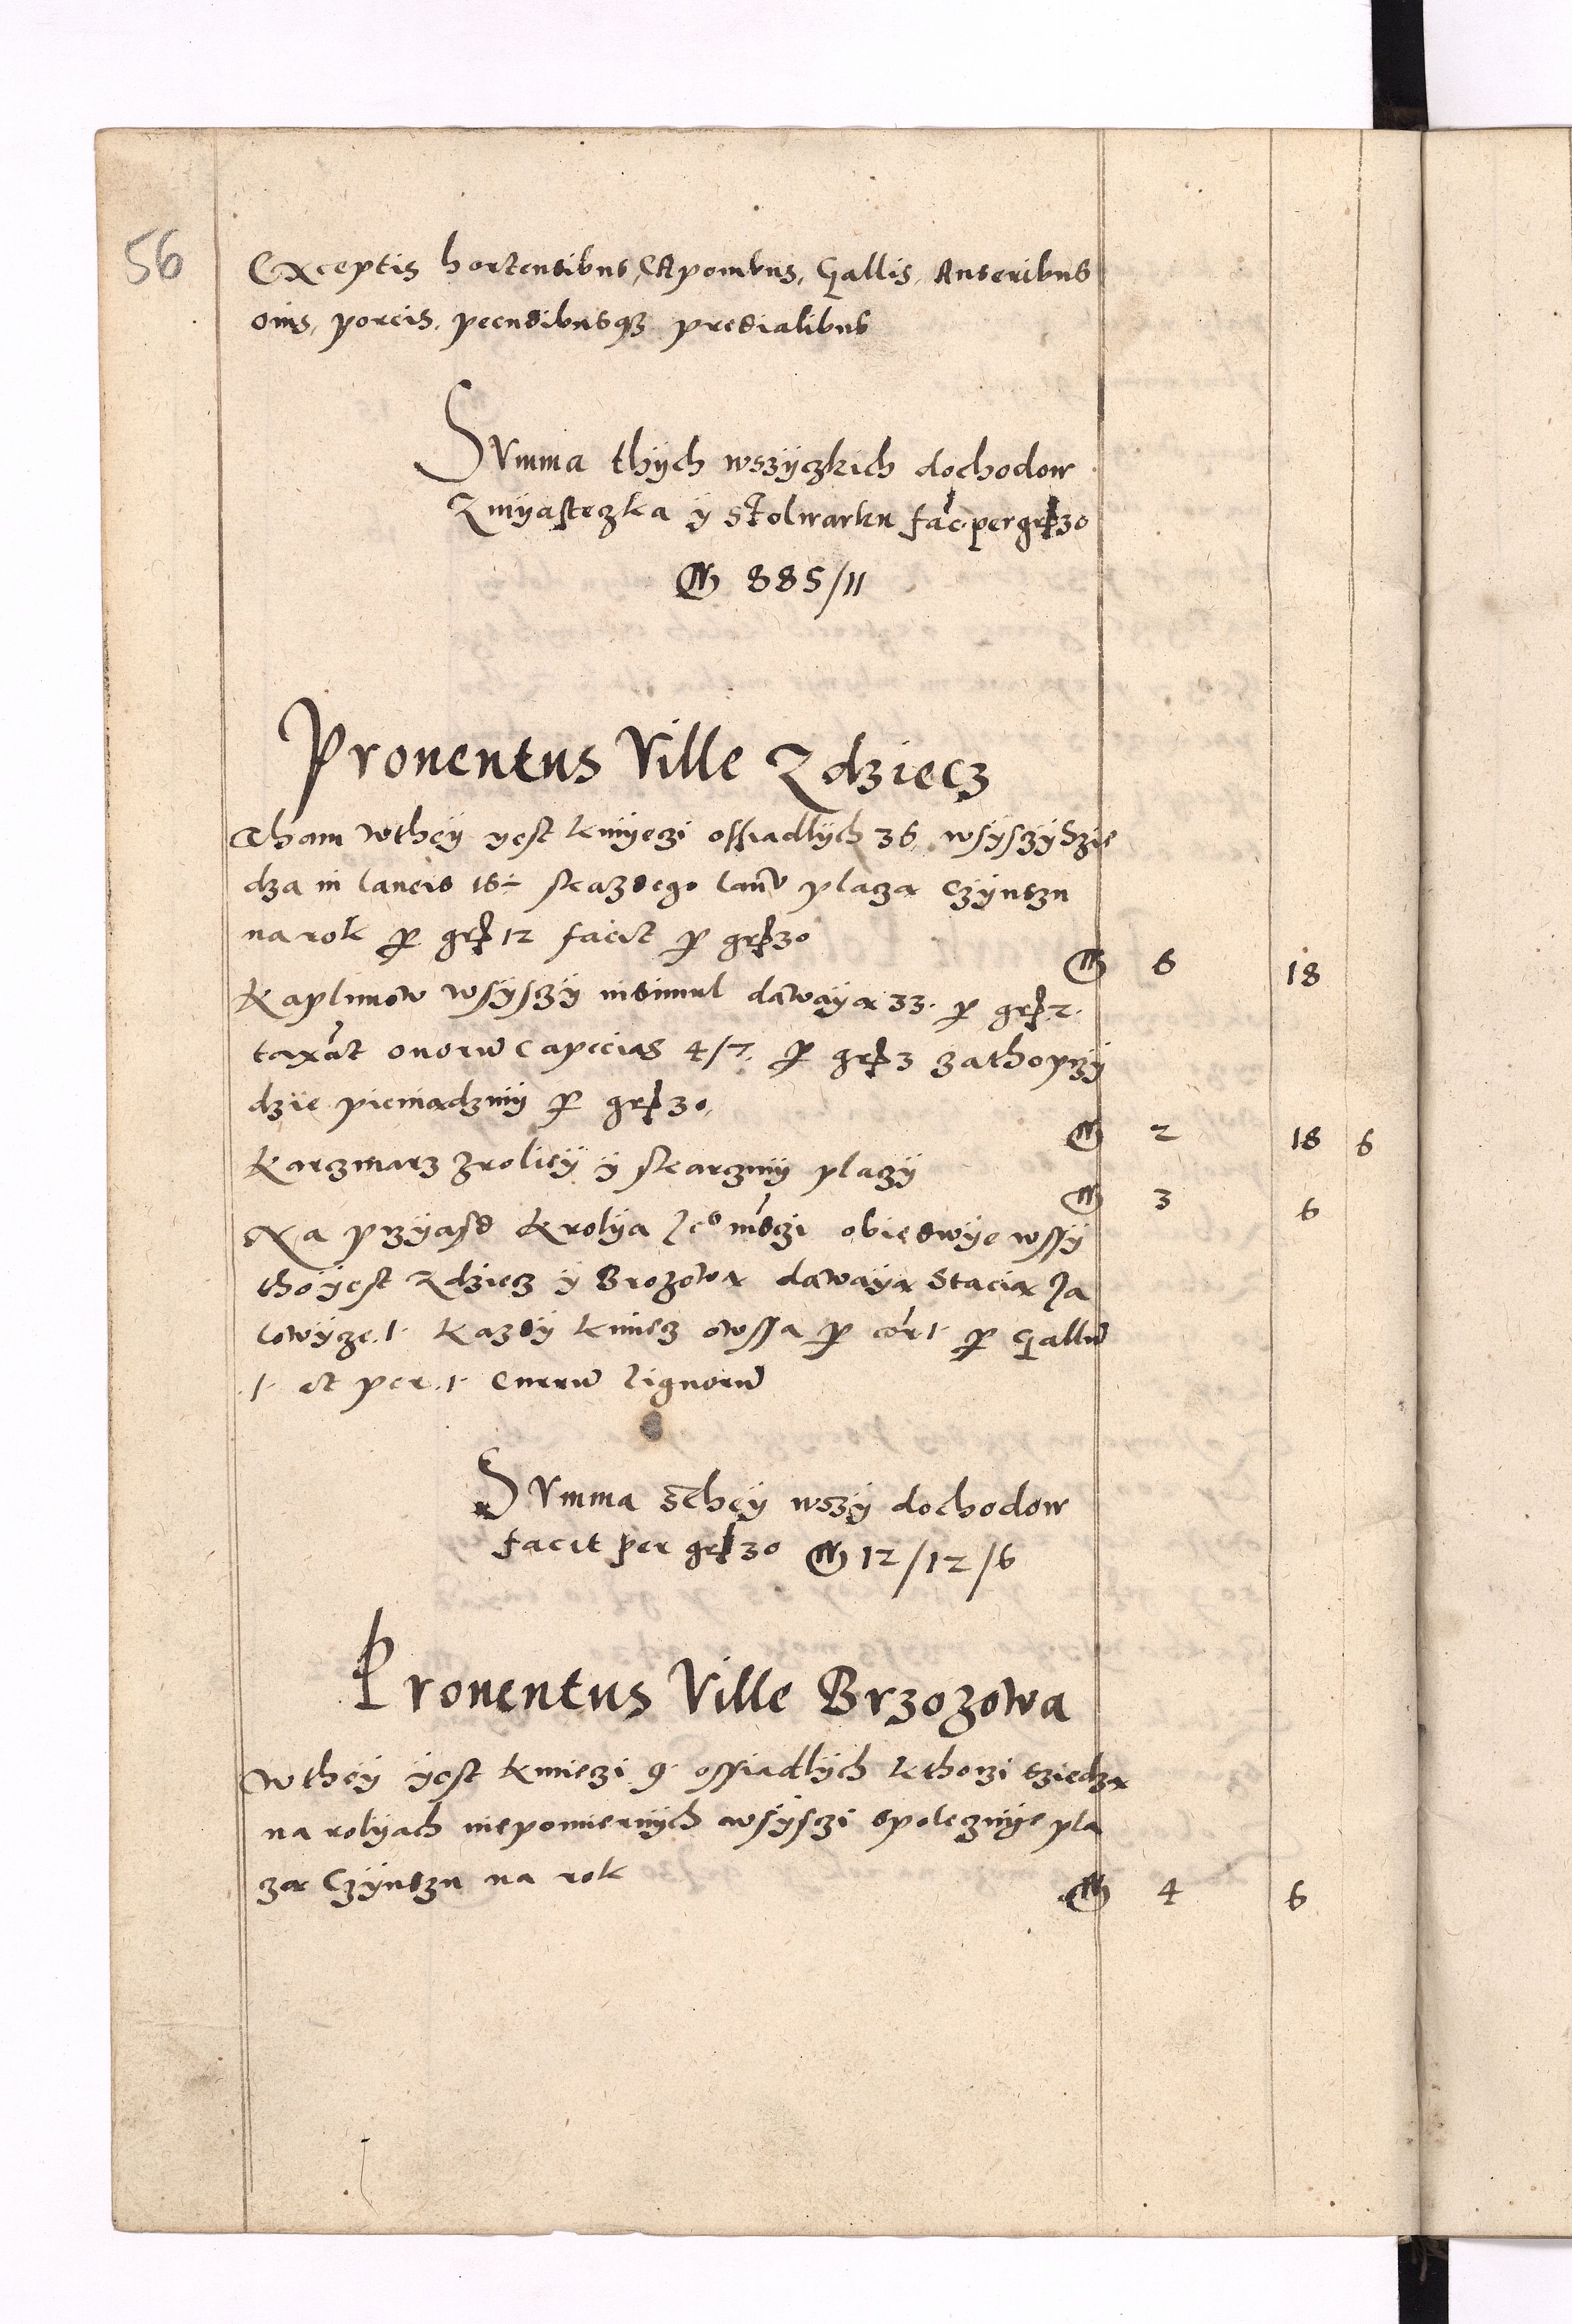 56
Exceptis hortensibus, CAponibus, Gallis, Anseribus
ouis, porcis, pecudibusq3 predialibus
SVmma thÿch wszÿczkich dochodow
Zmÿasteczka ÿ sFolwarku fac. per gr 30
M 885/11
Prouentus Ville Zdziecz
Tham Wtheÿ yest kmÿeczi ossiadlÿch 36 wsÿszÿ Szie
dza in laneis 16÷ skazdego lanv placza Czÿnszu
na rok p gr 12 facit p gr 30
M 6 18
Kaplunow wsÿszÿ insimul dawaÿa 33. p gr 2.
taxat ouoru capecias 4/7. p gr 3 zathoprzÿ
dzie pieniadzmÿ p gr 30.
M 2 18 6
Karzmarz Zroliey ÿ skarzmÿ placzÿ
M 3 6
Na przÿasd Krolÿa Jeo msczi obiedwÿe wssÿ
thoÿest Zdziecz ÿ Brozowa dawaÿa Stacia Ja
lowÿze .1. Kazdÿ kmiecz owssa p cor 1. p Gallu
.1. et per .1. Curru lignoru
SVmma stheÿ wszÿ dochodow
facit per gr 30 M 12/12/6
Prouentus Ville Brzozowa
Wtheÿ ÿest kmieczi 9. ossiadlÿch kthorzi sziedza
na rolyach niepomiernÿch wsÿsczi spolecznÿe pla
cza Czÿnszu na rok
M 4 6